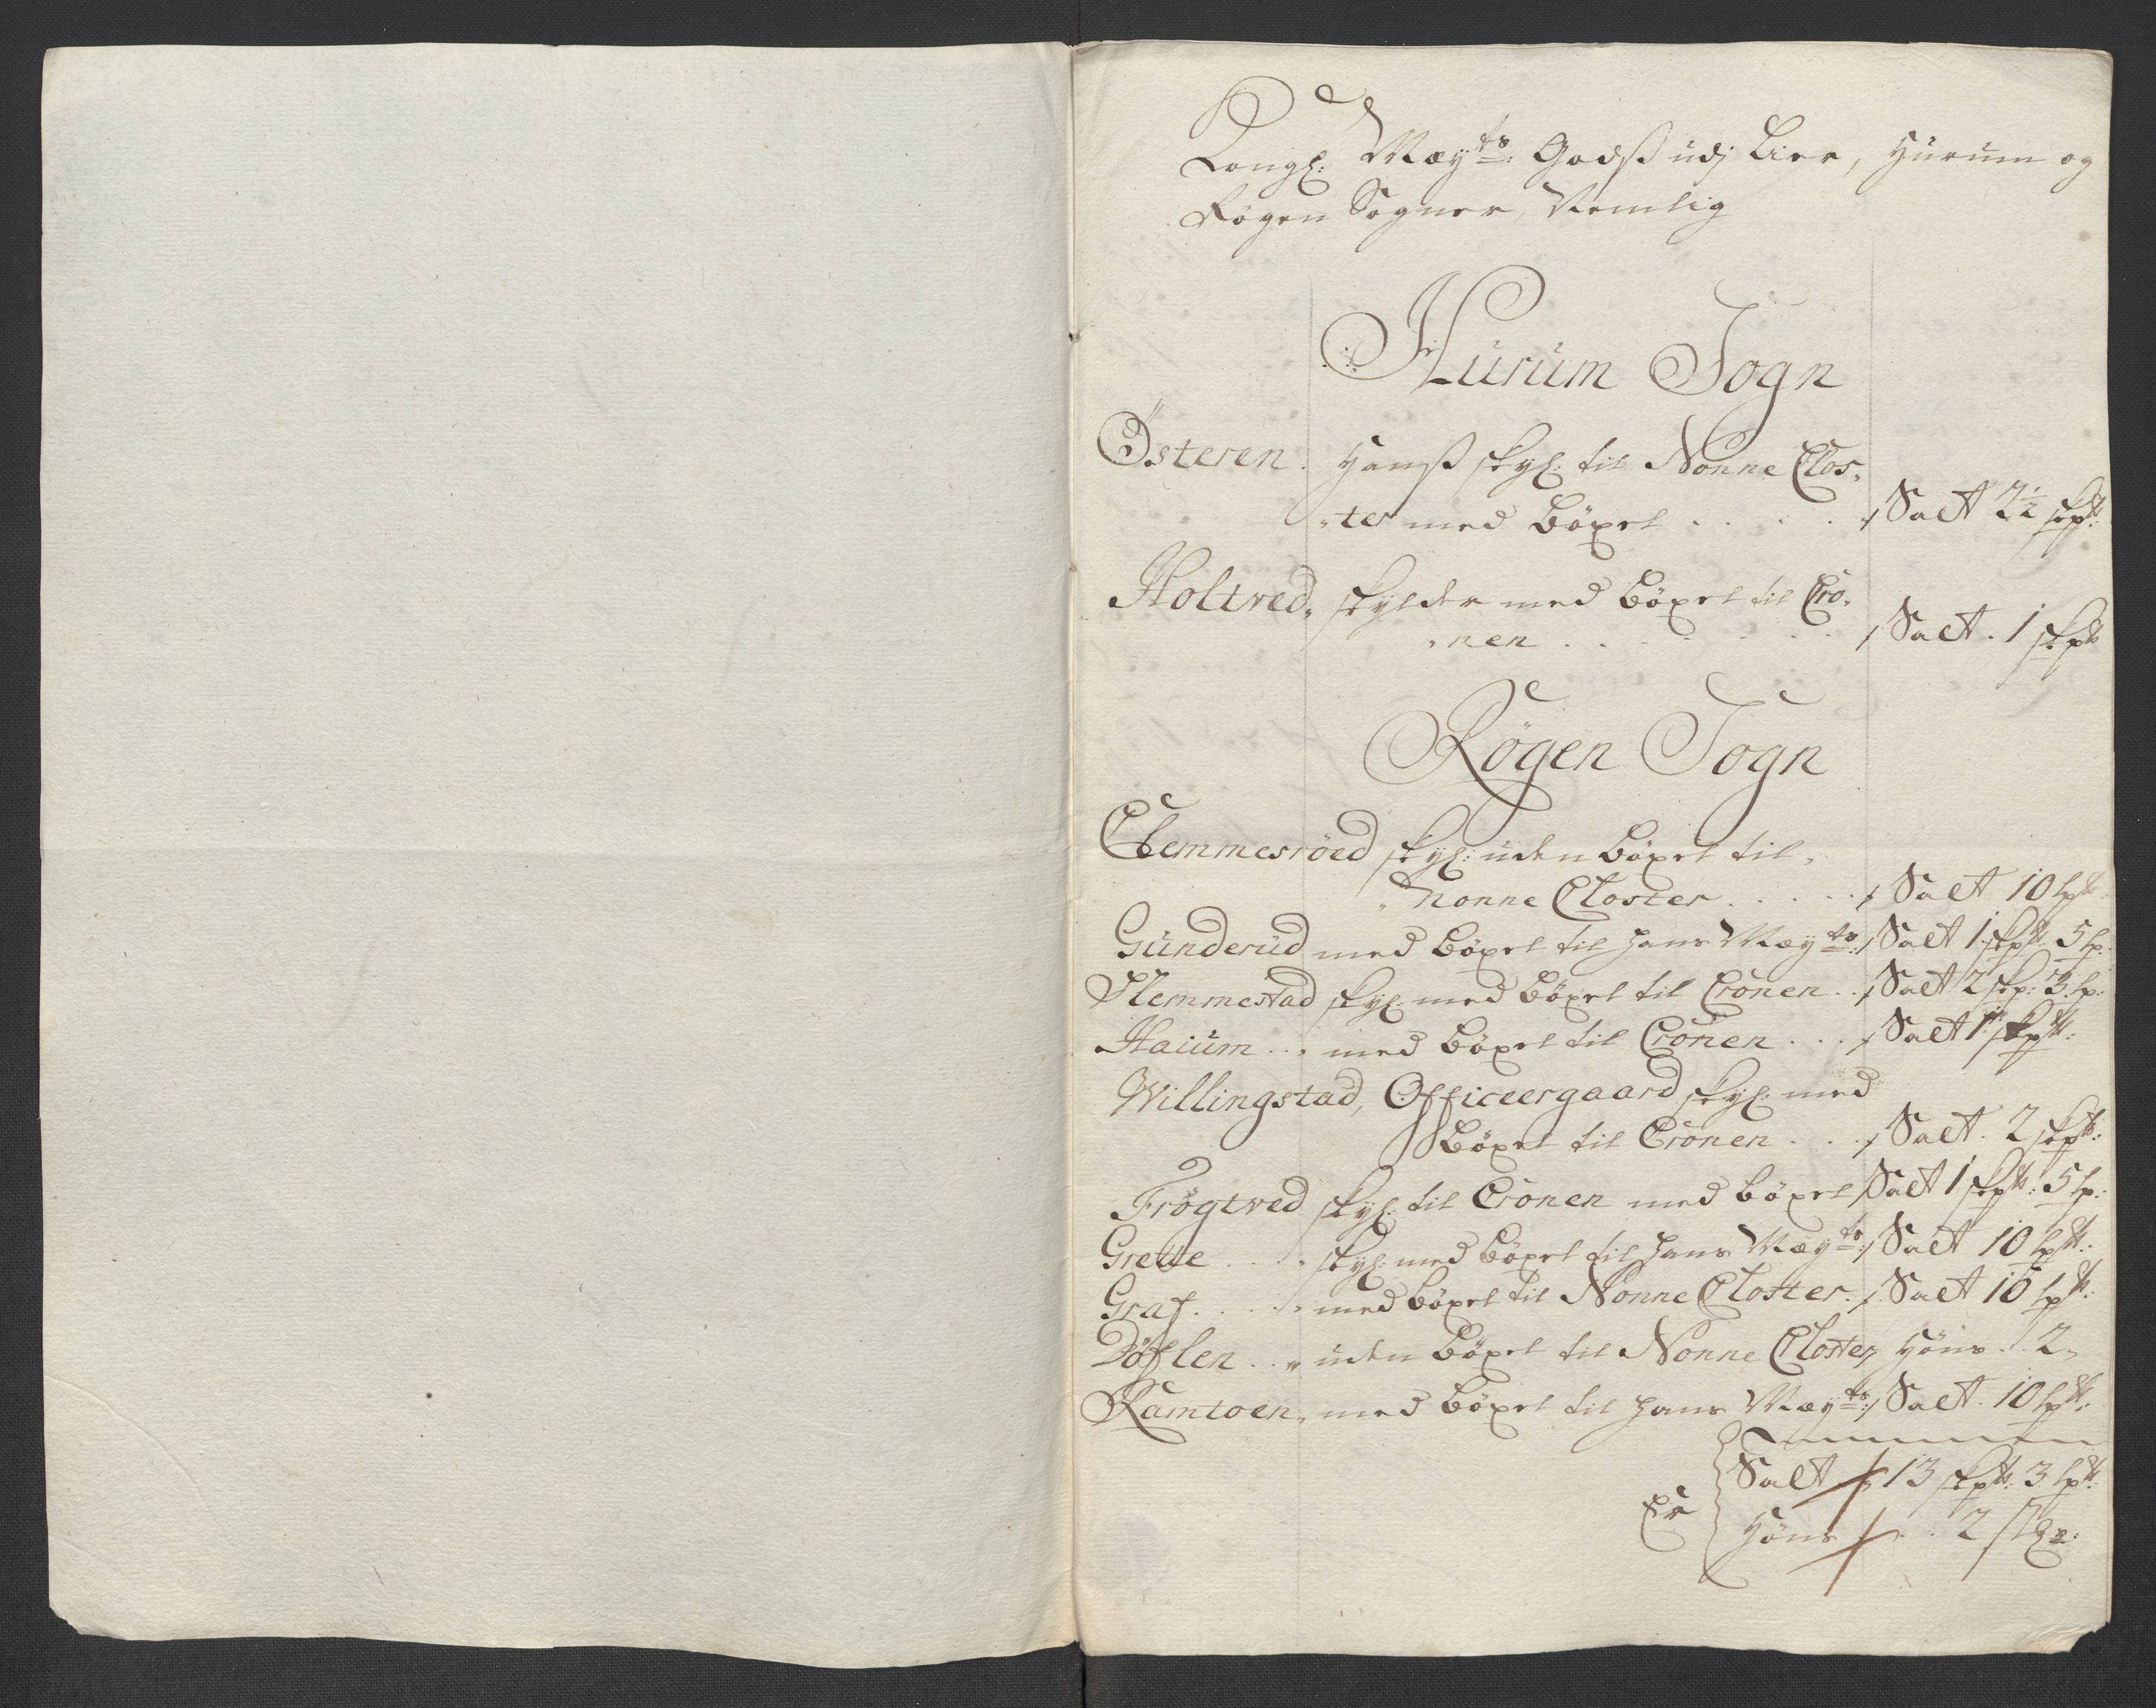 Kongl: Maÿts: Godß udj Lier, Hurum og
Røgen Sogner, Nemlig
Hurum Sogn
Østeren. Hanß skyl: til Nonne Clos,
,ter med böxel . . . . , Salt 2½ skp:
Holtved, skylder med böxel til Cro,
,nen . . . . . . , Salt . 1 skp
Røgen Sogn
Clemmesrøed skyl: uden böxel til,
, Nonne Closter . . . . , Salt 10 lp
Gunderud med böxel til hans Maÿts: , Salt 1 skp 5 lp:
Slemmestad skyl: med böxel til Cronen . . , Salt 2 skp: 3 lp:
Haium . . , med böxel til Cronen . . . , Salt 1 skp:
Willingstad, Officeergaard skyl: med
böxel til Cronen . . . , Salt . 2 skp:
Frøgtved skyl: til Cronen med böxel , Salt 1 skp: 5 lp:
Grette . . . , skyl: med böxel til hans Maÿts: , Salt 10 lp:
Graf . . . . , med böxel til Nonne Closter . , Salt 10 lp:
Døflen . . , uden böxel til Nonne Closter, Höns . . 2,
Ramtoen, med böxel til hans Maÿts: , Salt . 10 lp:
Salt 13 skp: 3 lp:
Er
Höns . . 2 stkr: